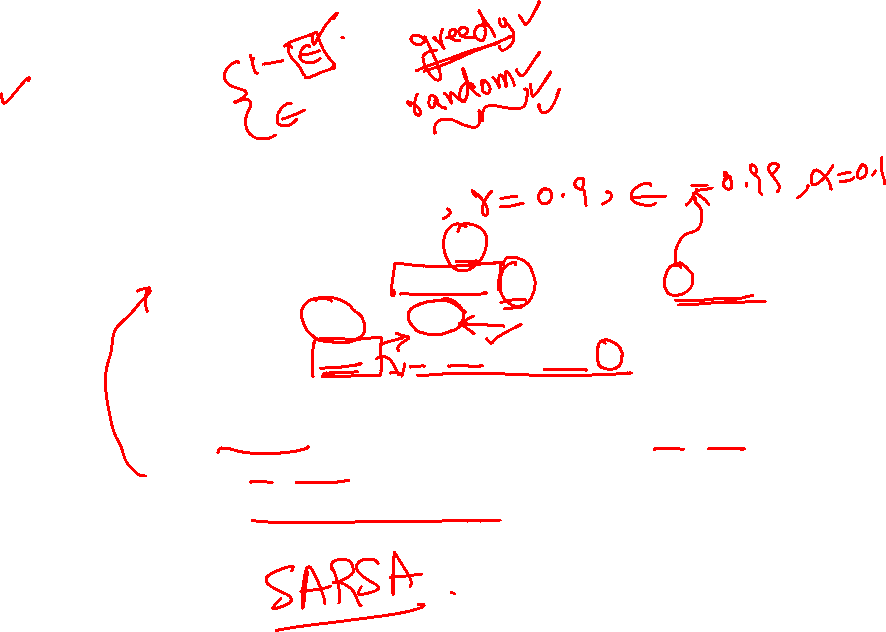 1 - ϵ greedy
ϵ random
, γ = 0.9, ϵ = 0.99, α = 0.1
SARSA.